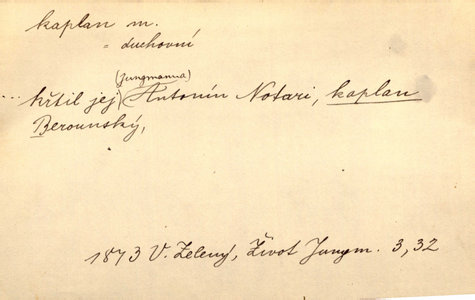 kaplan m.
= duchovní
(Jungmanna)
... křtil jej Antonín Notari, kaplan
Berounský,
1873 V. Zelený, Život Jungm. 3, 32